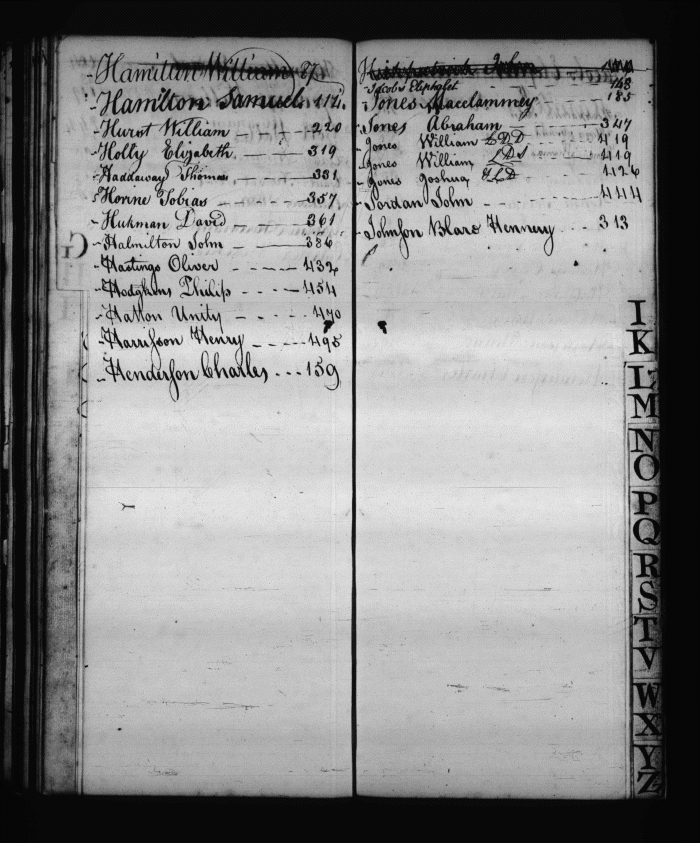 Hamilton William 27
Hamilton Samuel 112
Hurst William 220
Holly Elizabeth 319
Haddaway Thomas 331
Horine Tobias 357
Hukman David 361
Halmilton John 386
Hastings Oliver 432
Hodgkins Philip 454
Hatton Unity 470
Harrisson Henry 495
Henderson Charles 159
G
John
Jacobs Eliphalet 148
Jones Macclammey 185
Jones Abraham 347
Jones William 419
Jones William 419
Jones Joshua 426
Jordan John 444
Johnson Hennery 313
I
K
L
M
N
O
P
Q
R
S
T
V
W
X
Y
Z